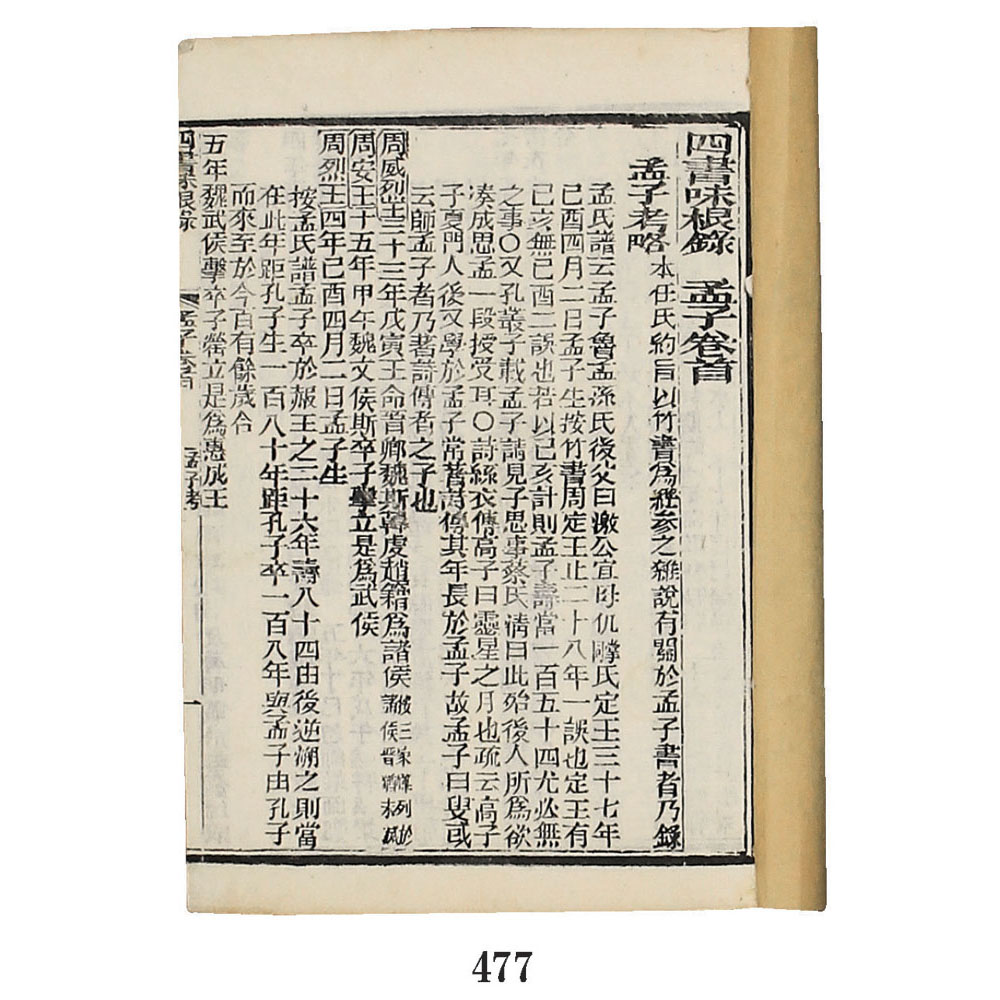 四書味根錄　孟子卷首
孟子考略 本任氏約旨以竹書爲經參之雜說有關於孟子書者乃錄
孟氏譜云孟子魯孟孫氏後父曰激公宜母仉氏定王三十七年
己酉四月二日孟子生按竹書周定王止二十八年一誤也定王有
己亥無己酉二誤也若以己亥計則孟子壽當一百五十四尤必無
之事〇又孔叢子載孟子請見子思事蔡氏清曰此殆後人所爲欲
湊成思孟一段授受耳〇詩絲衣傳高子曰靈星之月也疏云高子
子夏門人後又學於孟子常著詩傳其年長於孟子故孟子曰叟或
云師孟子者乃著詩傳者之子也
周威烈王二十三年戊寅王命晉卿魏斯韓虔趙籍爲諸侯
周安王十五年甲午魏文侯斯卒子擊立是爲武侯
周烈王四年己酉四月二日孟子生
按孟氏譜孟子卒於赧王之二十六年壽八十四由後逆溯之則當
在此年距孔子生一百八十年距孔子卒一百八年與孟子由孔子
而來至於今百有餘歲合
五年魏武侯擊卒子罃立是爲惠成王
四書味根錄　孟子卷首　孟子考　一
477